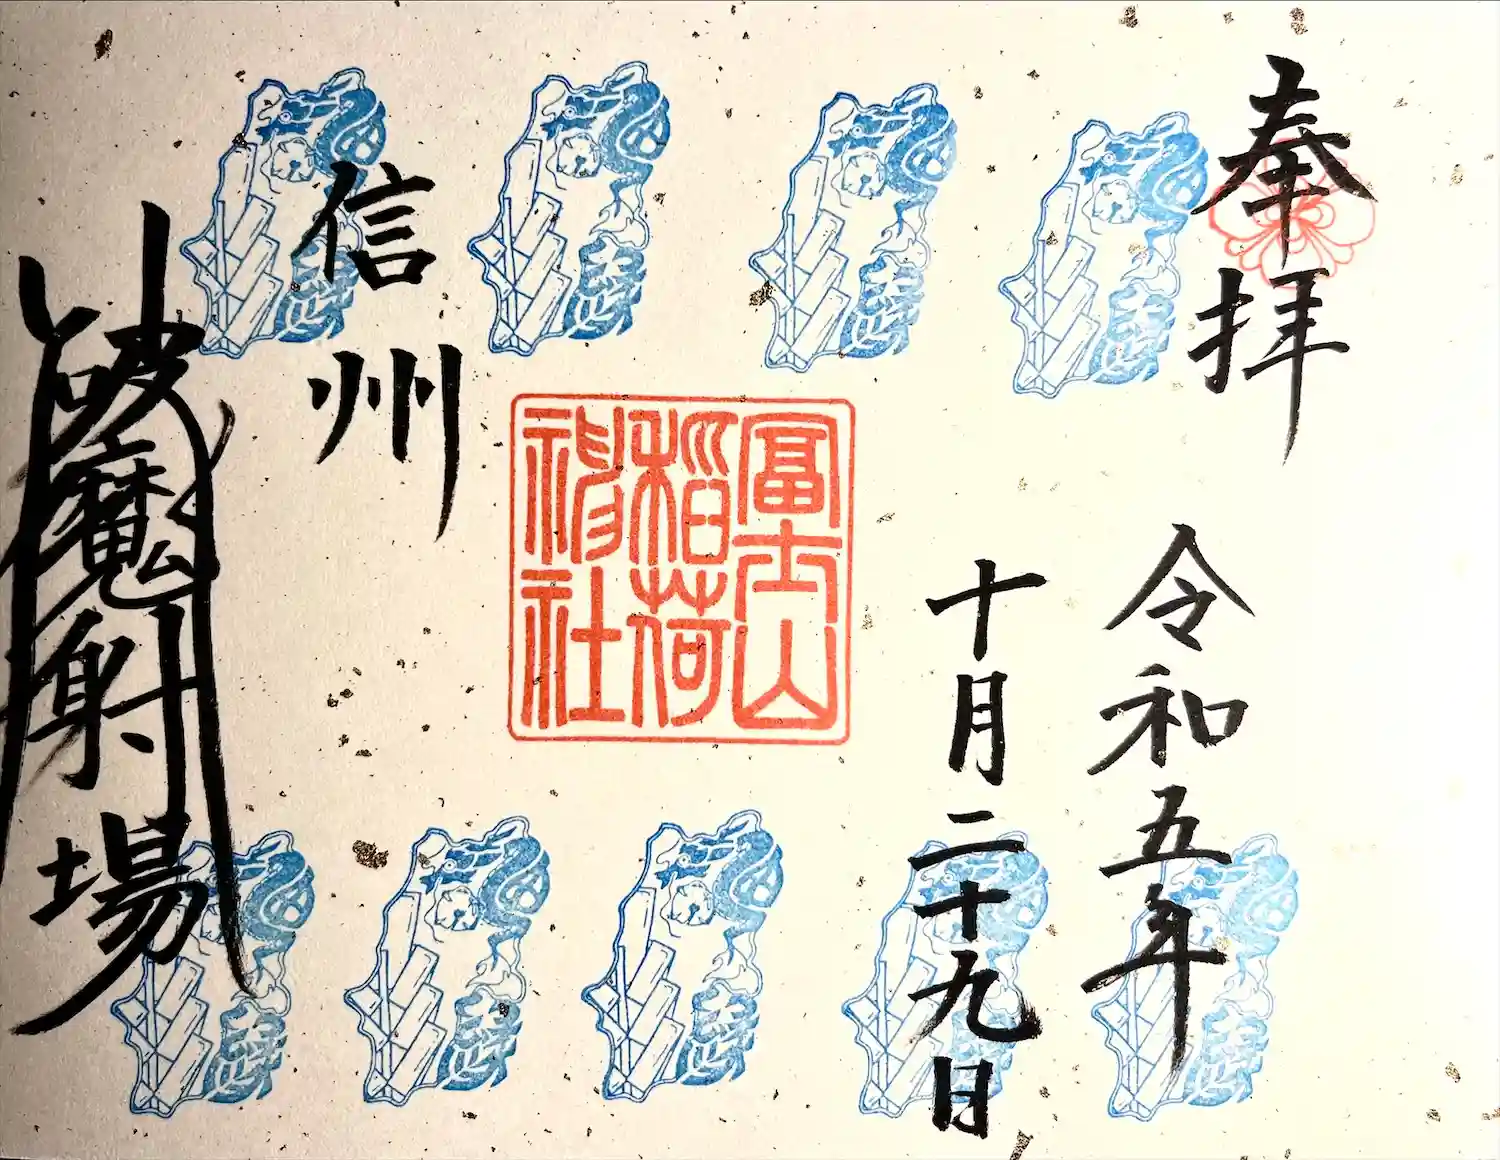 奉拝
令和五年
十月二十九日
冨士山
稲荷
神社
信州
破魔射場